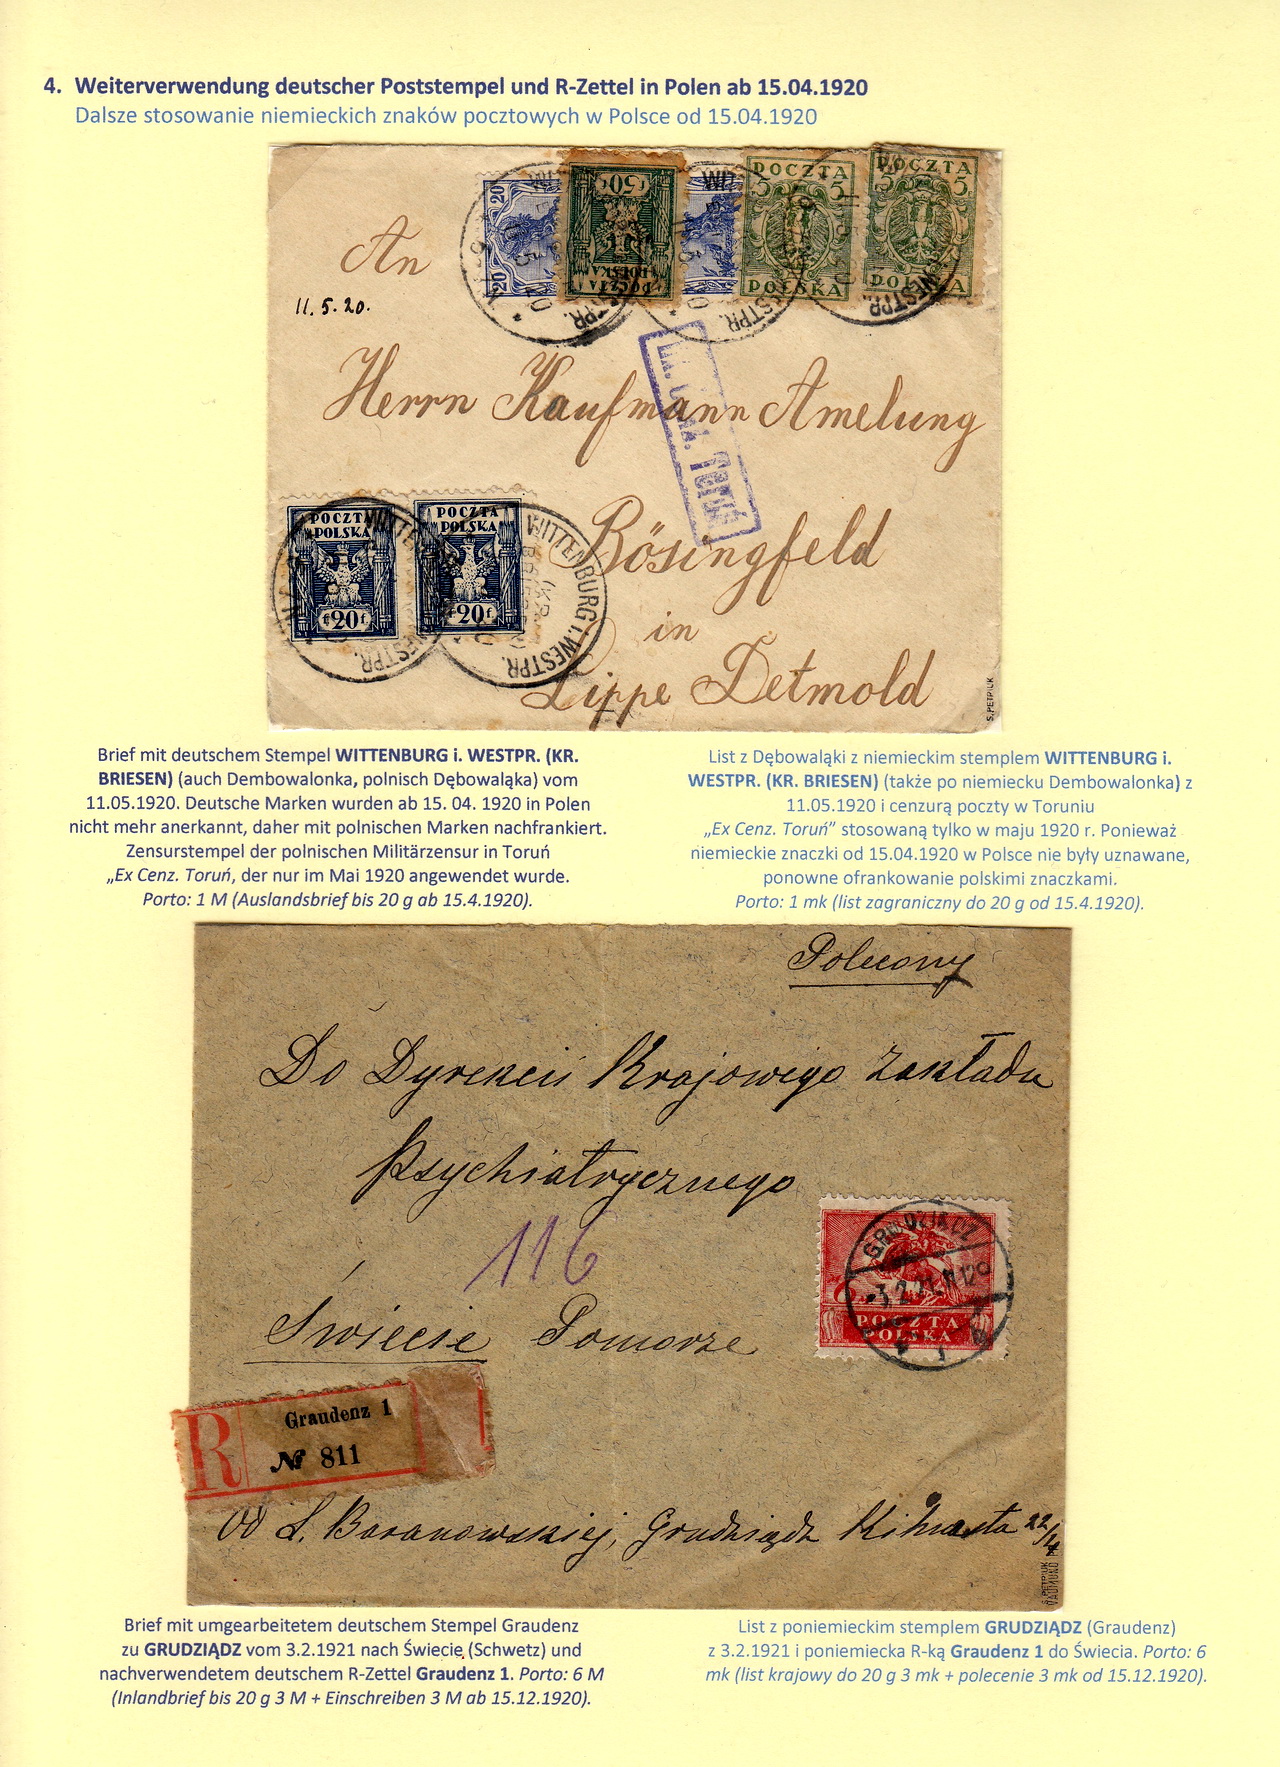 4. Weiterverwendung deutscher Poststempel und R-Zettel in Polen ab 15.04.1920
Dalsze stosowanie niemieckich znaków pocztowych w Polsce od 15.04.1920
20
20
50
POCZTA
POLSKA
POCZTA
5 5
POLSKA
POCZTA
5 5
POLSKA
WESTPR.
An
11.5.20.
Herrn Kaufmann Amelung
Toruń
Rösingfeld
in
Lippe Detmold
POCZTA
POLSKA
f20f
POCZTA
POLSKA
f20f
WITTENBURG i. WESTPR.
S. PETRIUK
Brief mit deutschem Stempel WITTENBURG i. WESTPR. (KR.
BRIESEN) (auch Dembowalonka, polnisch Dębowaląka) vom
11.05.1920. Deutsche Marken wurden ab 15. 04. 1920 in Polen
nicht mehr anerkannt, daher mit polnischen Marken nachfrankiert.
Zensurstempel der polnischen Militärzensur in Toruń
„Ex Cenz. Toruń, der nur im Mai 1920 angewendet wurde.
Porto: 1 M (Auslandsbrief bis 20 g ab 15.4.1920).
List z Dębowaląki z niemieckim stemplem WITTENBURG i.
WESTPR. (KR. BRIESEN) (także po niemiecku Dembowalonka) z
11.05.1920 i cenzurą poczty w Toruniu
„Ex Cenz. Toruń” stosowaną tylko w maju 1920 r. Ponieważ
niemieckie znaczki od 15.04.1920 w Polsce nie były uznawane,
ponowne ofrankowanie polskimi znaczkami.
Porto: 1 mk (list zagraniczny do 20 g od 15.4.1920).
Polecony
Do Dyrekcii Krajowego Zakładu
Psychiatrycznego
116
Świecie Pomorze
GRUDZIĄDZ
3.2.21
POCZTA
POLSKA
R
Graudenz 1
№ 811
Od L. Baranowskiej, Grudziądz 22/4
S. PETRIUK
Brief mit umgearbeitetem deutschem Stempel Graudenz
zu GRUDZIĄDZ vom 3.2.1921 nach Świecie (Schwetz) und
nachverwendetem deutschem R-Zettel Graudenz 1. Porto: 6 M
(Inlandbrief bis 20 g 3 M + Einschreiben 3 M ab 15.12.1920).
List z poniemieckim stemplem GRUDZIĄDZ (Graudenz)
z 3.2.1921 i poniemiecka R-ką Graudenz 1 do Świecia. Porto: 6
mk (list krajowy do 20 g 3 mk + polecenie 3 mk od 15.12.1920).